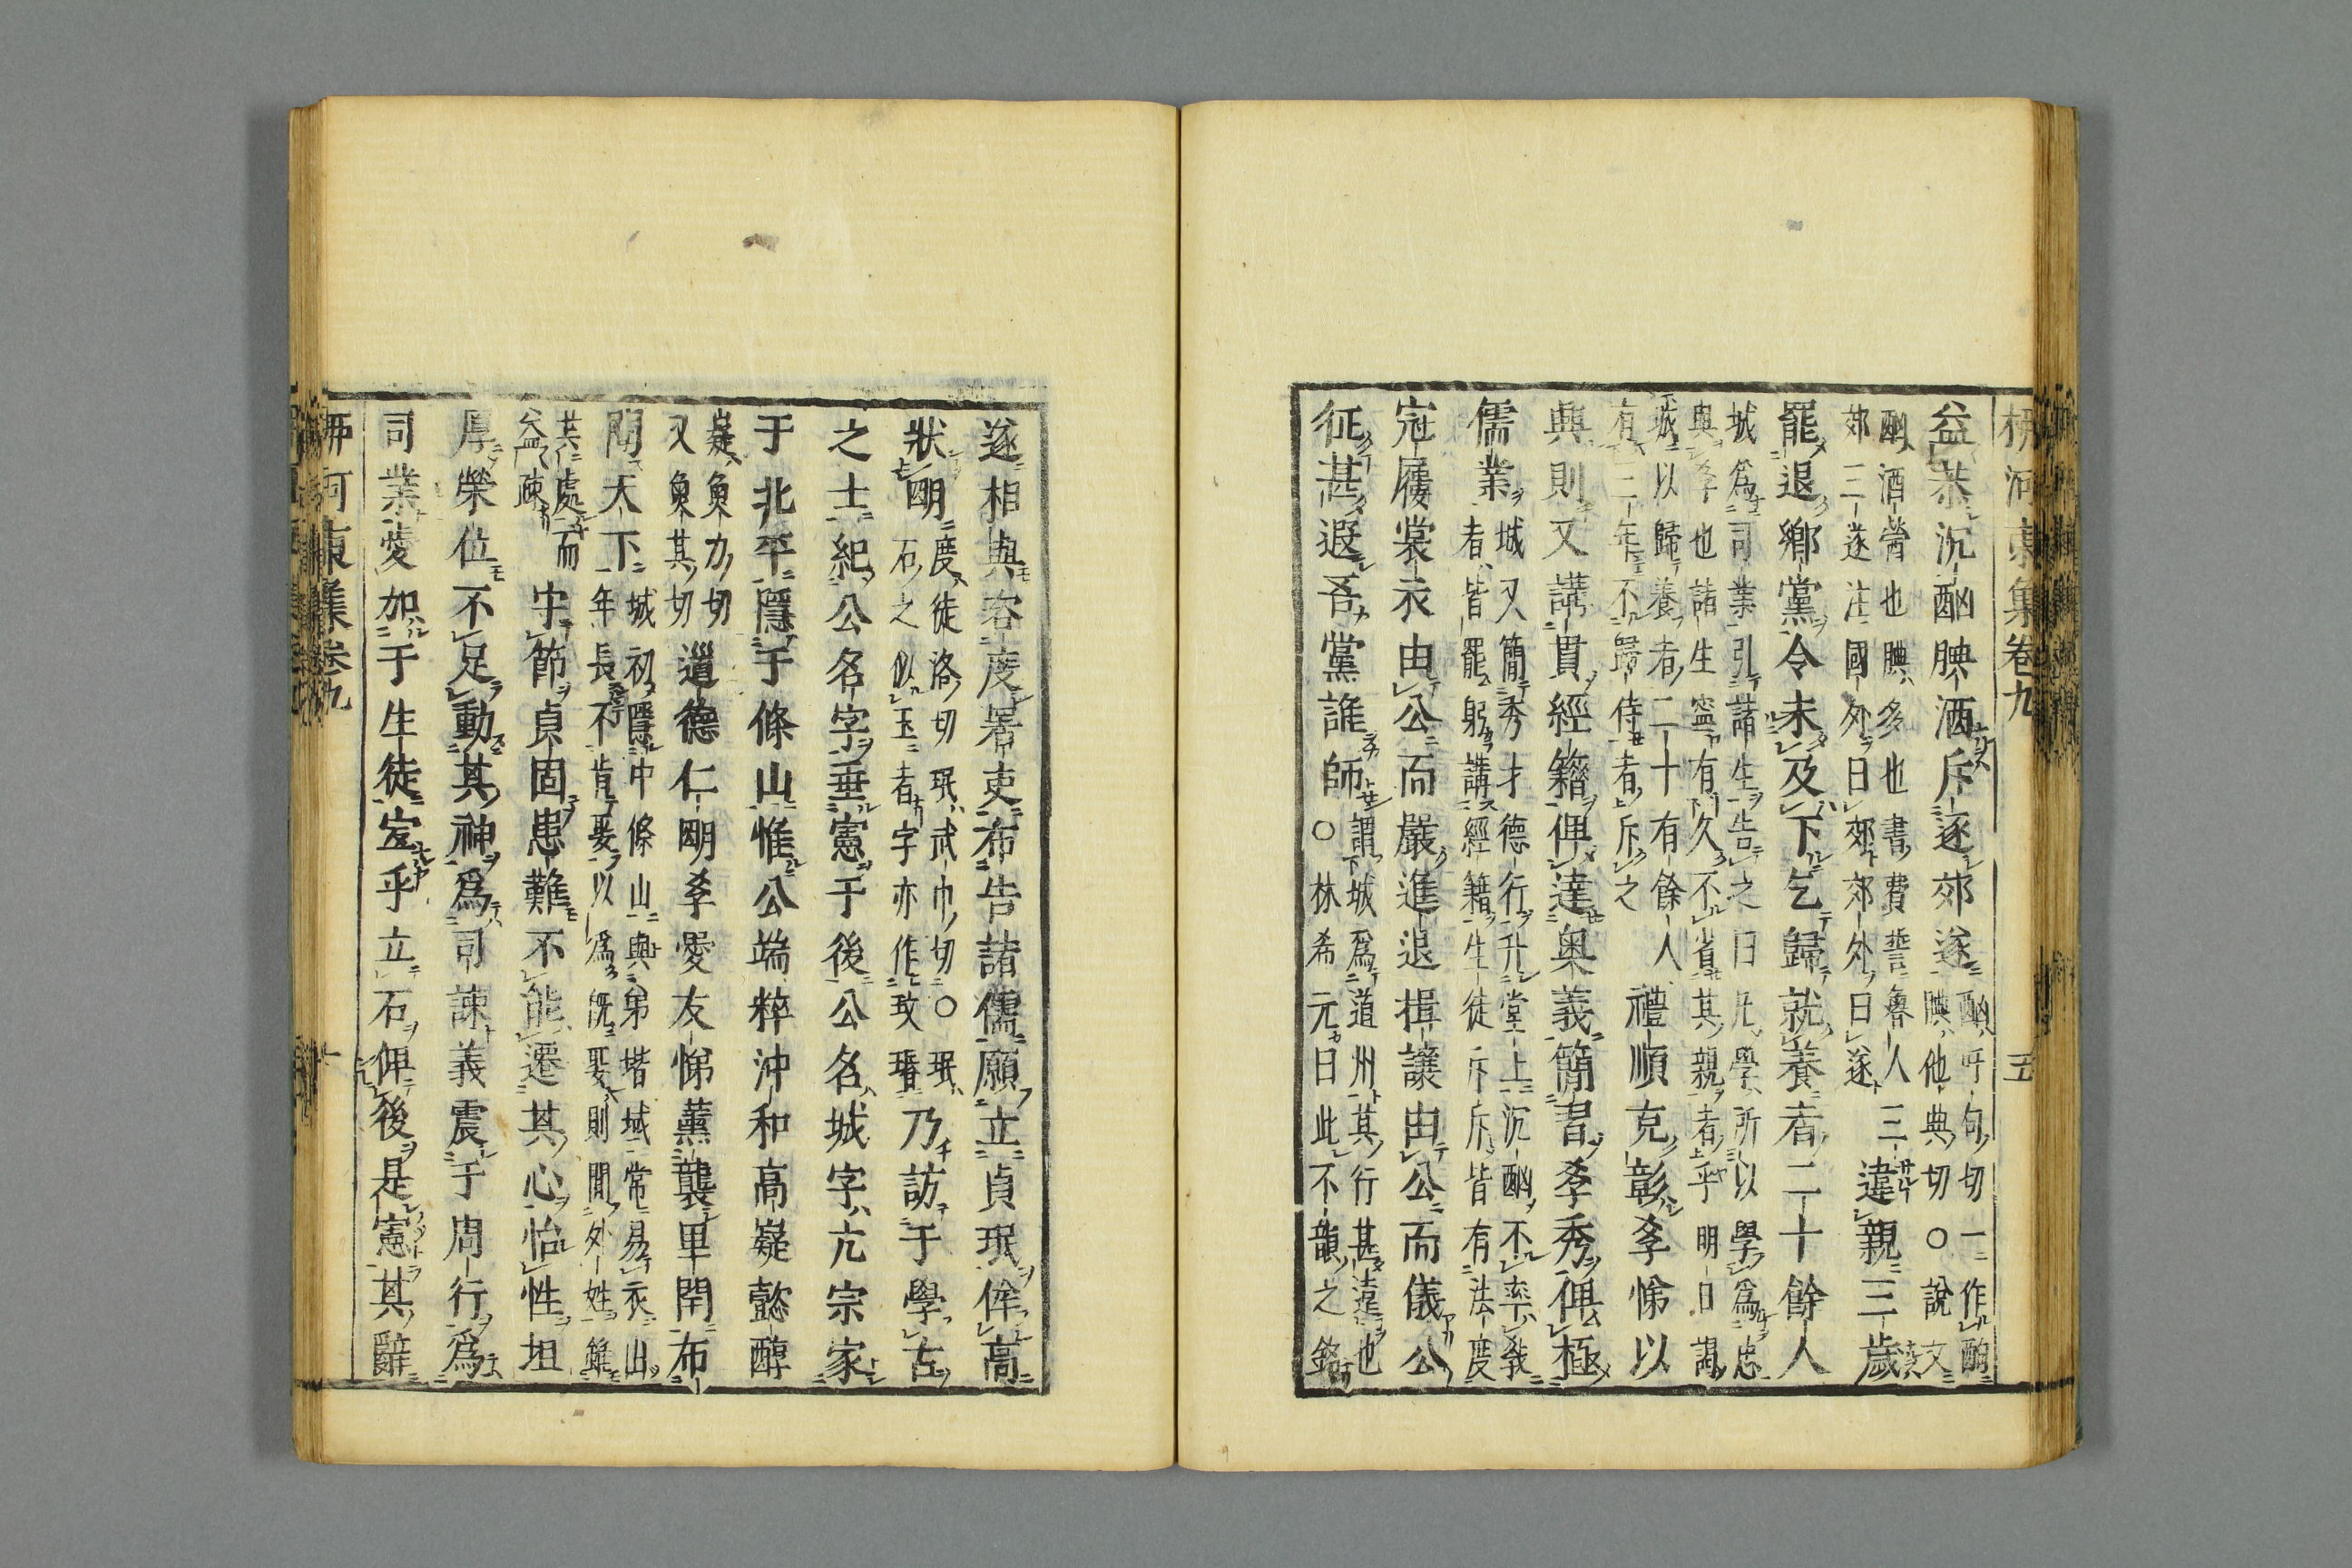 柳河東集卷九 五
益恭沉酗腆酒斥逐郊遂
酗呼句切一作酌
腆他典切○說文
酗酒醟也腆多也書費誓魯人三
郊三遂注國外曰郊郊外曰遂
違親三歲
罷退鄉黨令未及下乞歸就養者二十餘人
城為司業引諸生告之曰凡學所以學為忠
與孝也諸生寧有久不省其親者乎明日謁
城以歸養者二十有餘人
有三年不歸侍者斥之
禮順克彰孝悌以
興則又講貫經籍俾達奧義簡書孝秀俾極
儒業
城又簡秀才德行升堂上沉酗不率教
者皆罷躬講經籍生徒斥斥皆有法度
冠屨裳衣由公而嚴進退揖讓由公而儀公
征甚遐吾黨誰師
謂城為道州其行甚遠也
○林希元曰此不韻之銘
遂相與咨度署吏布告諸儒願立貞珉侔高
狀明
度徒洛切珉武巾切○珉
石之似玉者字亦作玟瑉
乃訪于學古
之士紀公名字垂憲于後公名城字亢宗家
于北平隱于條山惟公端粹沖和高嶷懿醇
嶷魚力切
又魚其切
道德仁明孝愛友悌薰襲里閈布
聞天下
城初隱中條山與弟堦域常易衣出
年長不肯娶以為既娶則間外姓雖
共處而
益疎
守節貞固患難不能遷其心怡性坦
厚榮位不足動其神為司諫義震于周行為
司業愛加于生徒宜乎立石俾後是憲其辭
柳河東集卷九